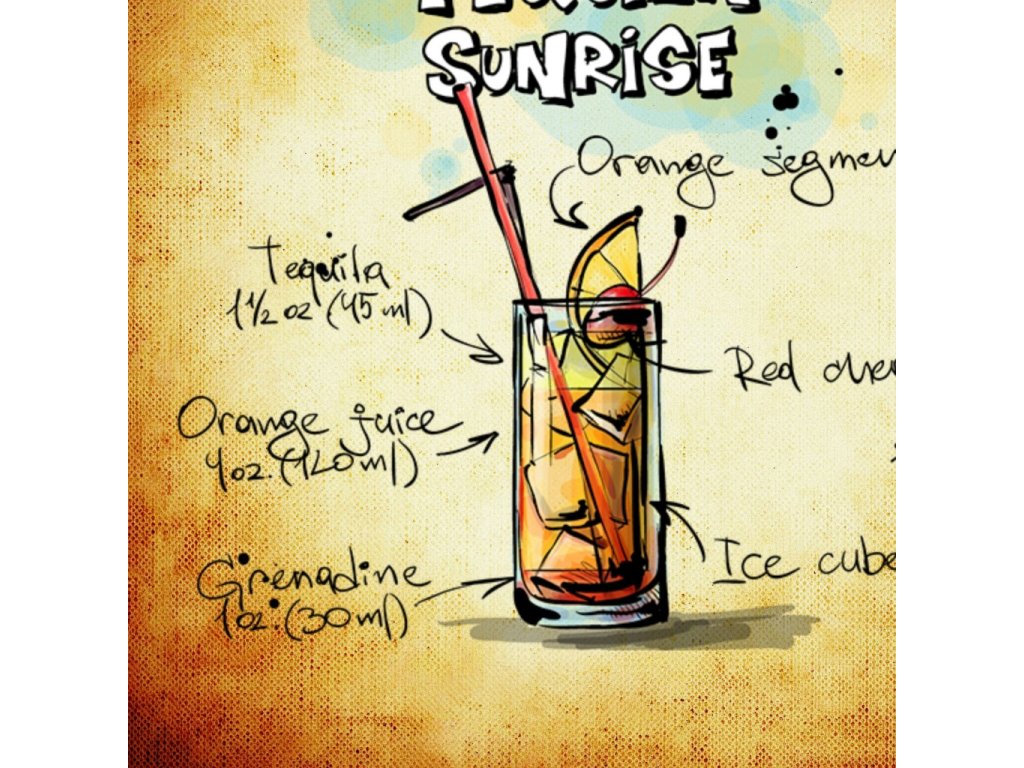 SUNRISE
Orange
Tequila
1 1/2 oz (45 ml)
Red
Orange juice
4oz. (120ml)
Ice
Grenadine
1oz. (30ml)